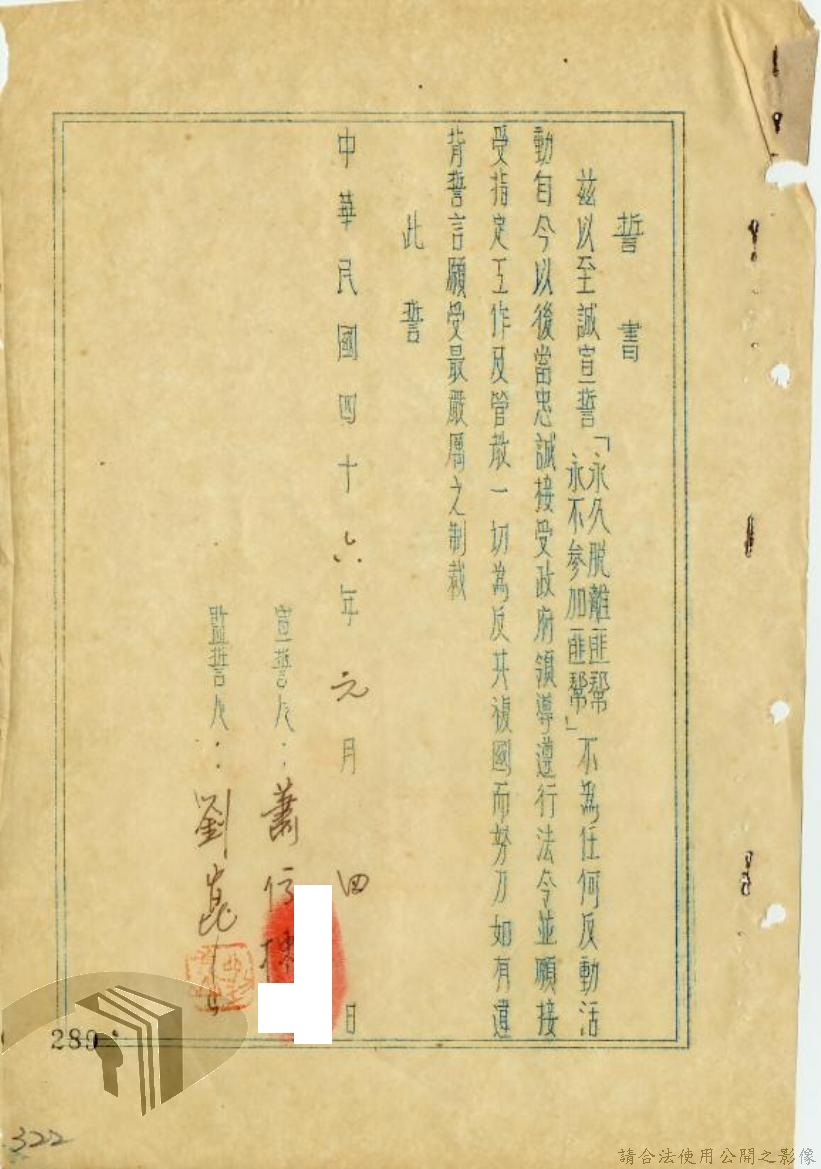 誓書
茲以至誠宣誓「永久脫離匪幫
永不參加匪幫」不為任何反動活
動自今以後當忠誠接受政府領導遵行法令並願接
受指定工作及管教一切為反共複國而努力如有違
背誓言願受最嚴厲之制裁
此誓
中華民國四十六年元月四日
宣誓人：蕭信棟
監誓人：劉崑
289
322
請合法使用公開之影像